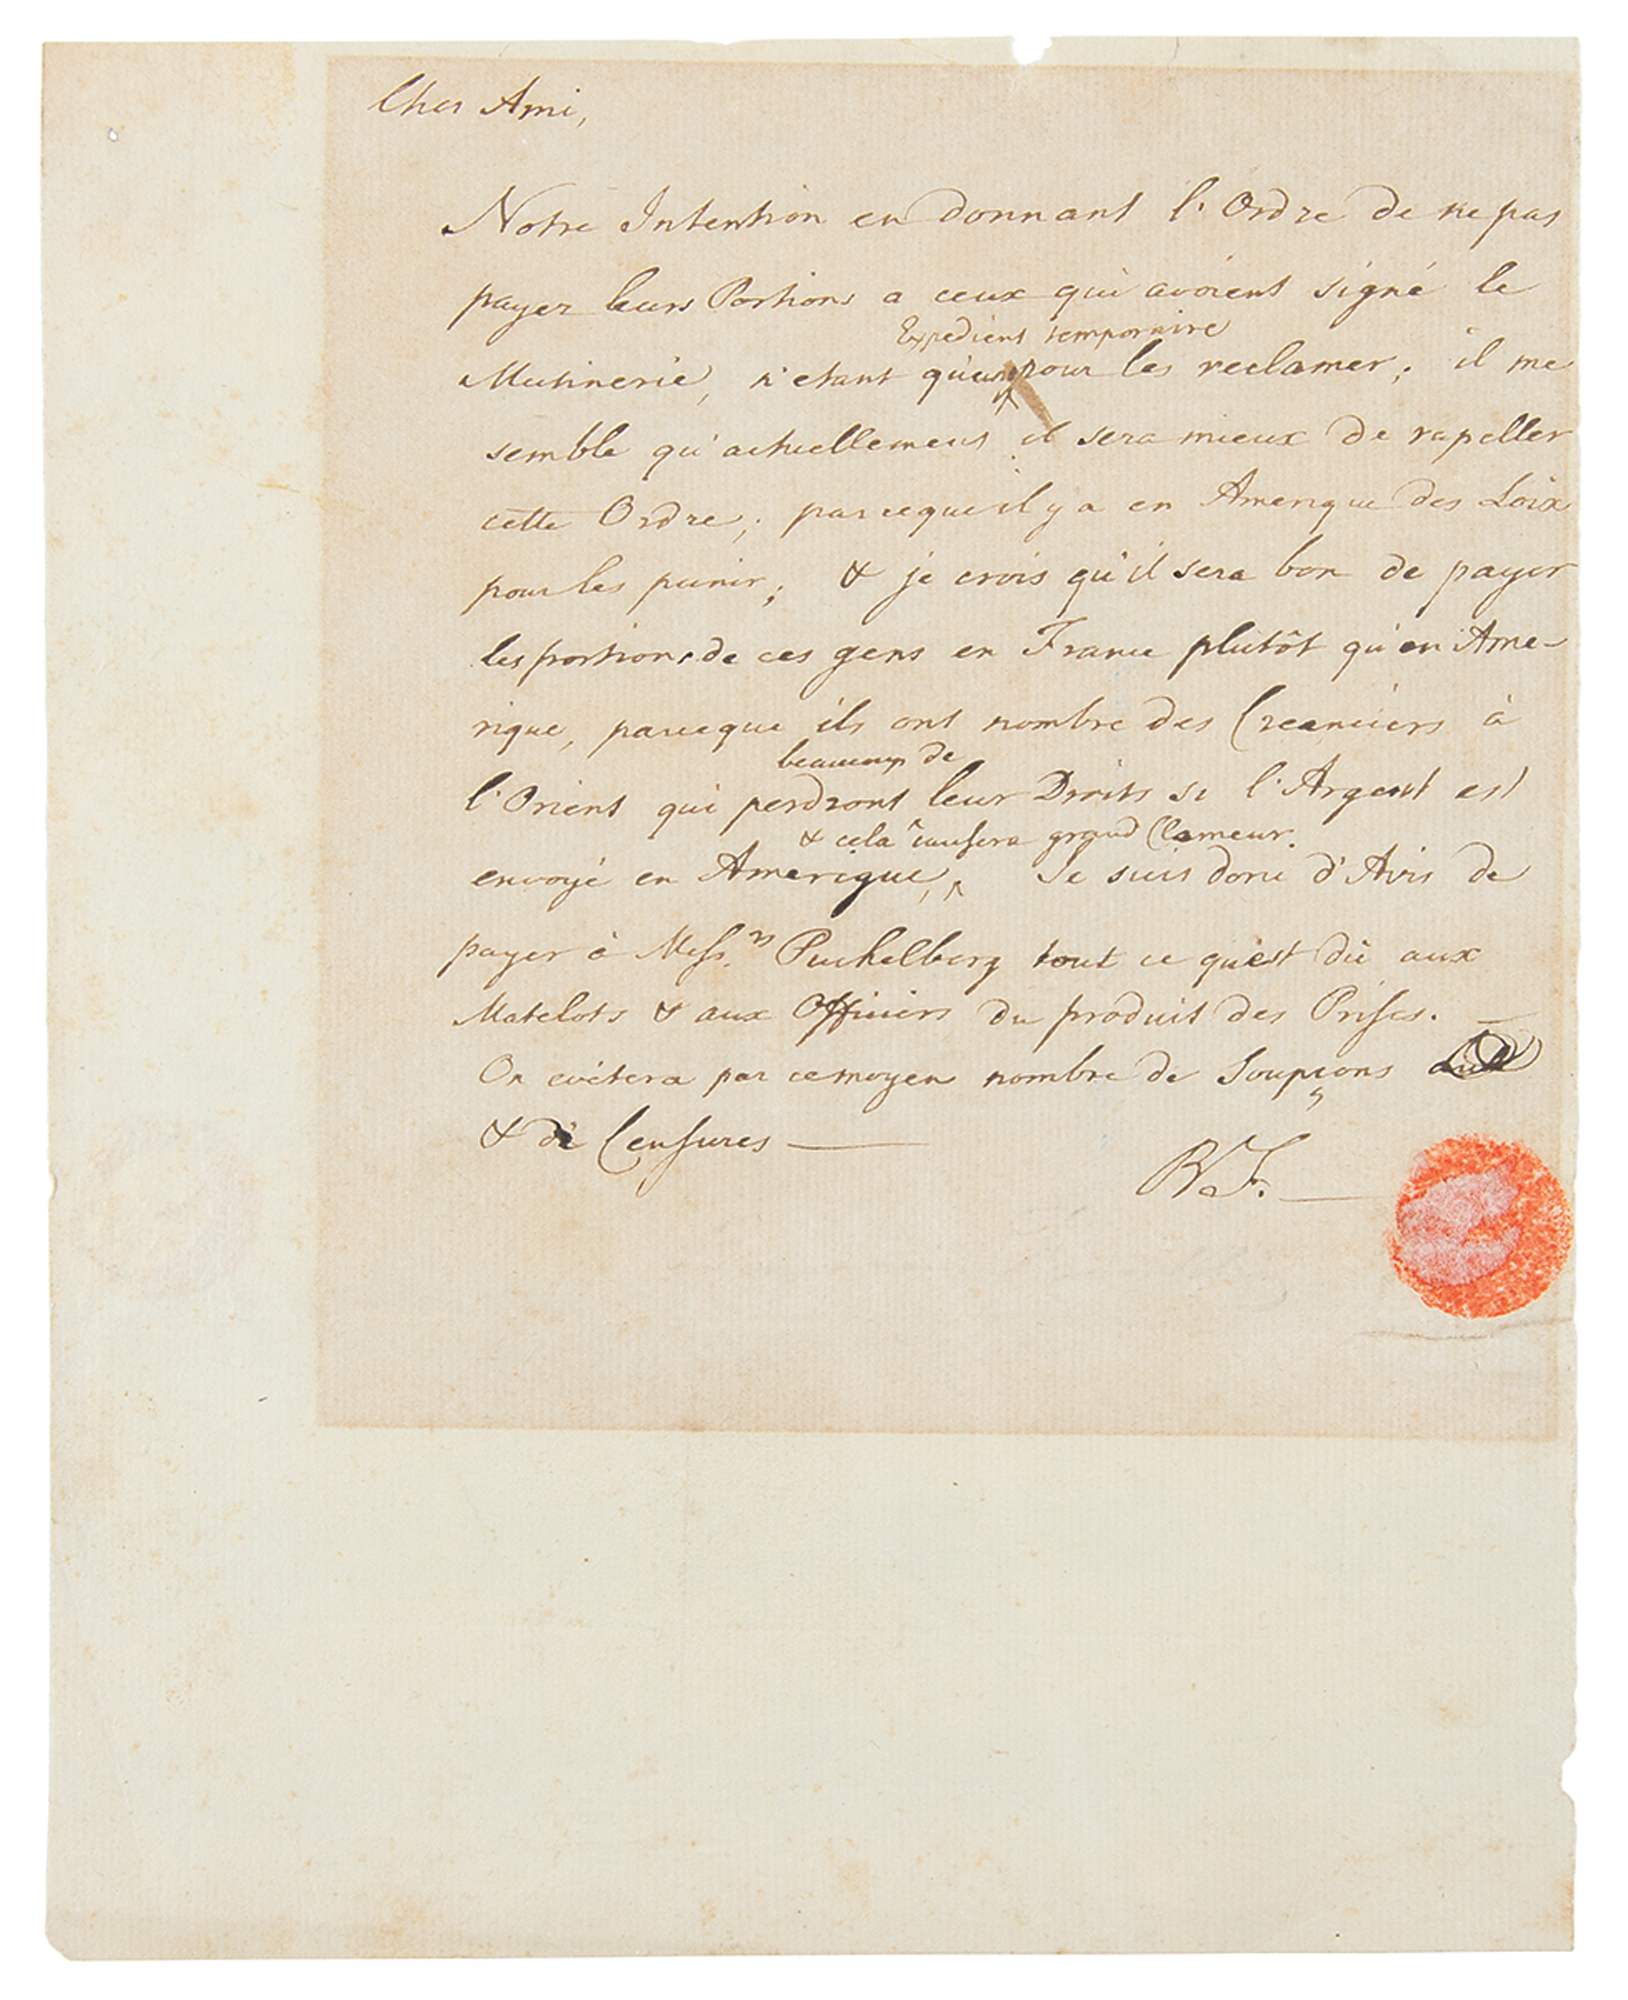 Cher Ami,
Notre Intention en donnant l'Ordre de ne pas
payer leurs Portions a ceux qui avoient signé le
Expedient temporaire
Mutinerie, n'etant qu'un pour les reclamer; il me
semble qu'actuellement il sera mieux de rapeller
cette Ordre; parceque il y a en Amerique des Loix
pour les punir; & je crois qu'il sera bon de payer
les portions de ces gens en France plutôt qu'en Ame-
rique, parceque ils ont nombre des Creanciers à
beaucoup de
l'Orient qui perdront leur Droits si l'Argent est
& cela causera grand Clameur.
envoyé en Amerique, Je suis donc d'Avis de
payer à Messrs Puchelberg tout ce qu'est dû aux
Matelots & aux Officiers du produit des Prises. —
On evitera par ce moyen nombre de Soupçons
& de Censures —
BF. —